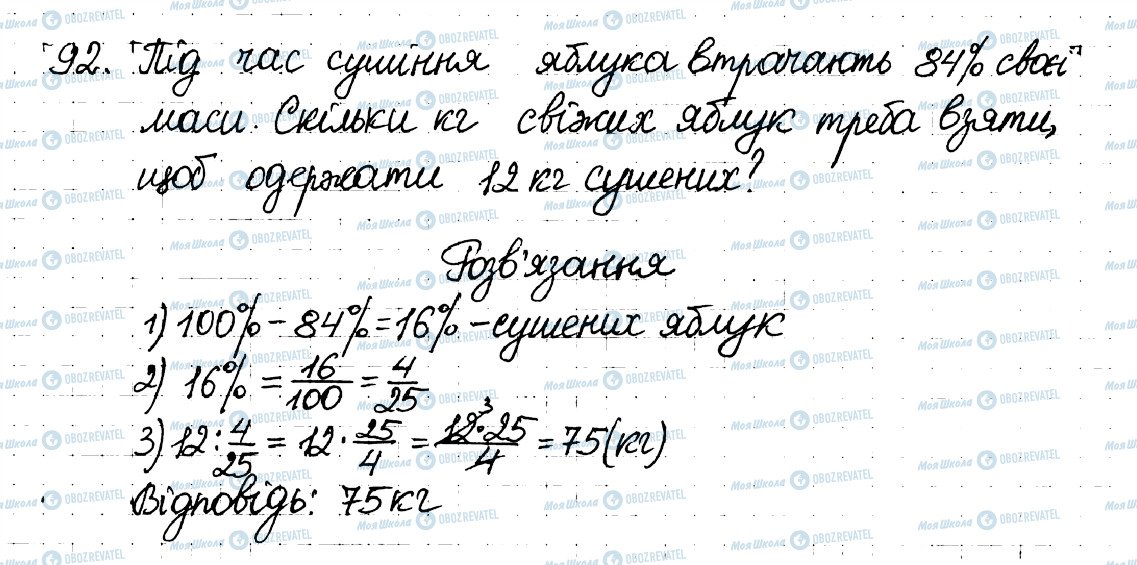 92. Під час сушіння яблука втрачають 84% своєї
маси. Скільки кг свіжих яблук треба взяти,
щоб одержати 12 кг сушених?
Розв'язання
1) 100% - 84% = 16% - сушених яблук
2) 16% = 16/100 = 4/25
3) 12 : 4/25 = 12 · 25/4 = 12³ · 25/4 = 75 (кг)
Відповідь: 75 кг